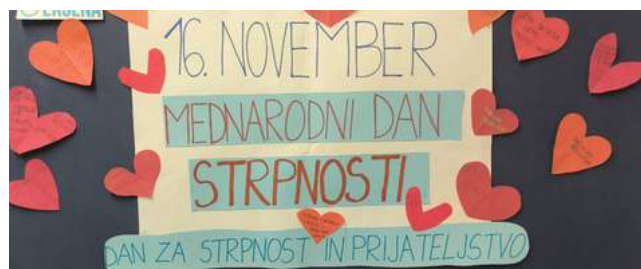 16. NOVEMBER
MEDNARODNI DAN
STRPNOSTI
DAN ZA STRPNOST IN PRIJATELJSTVO